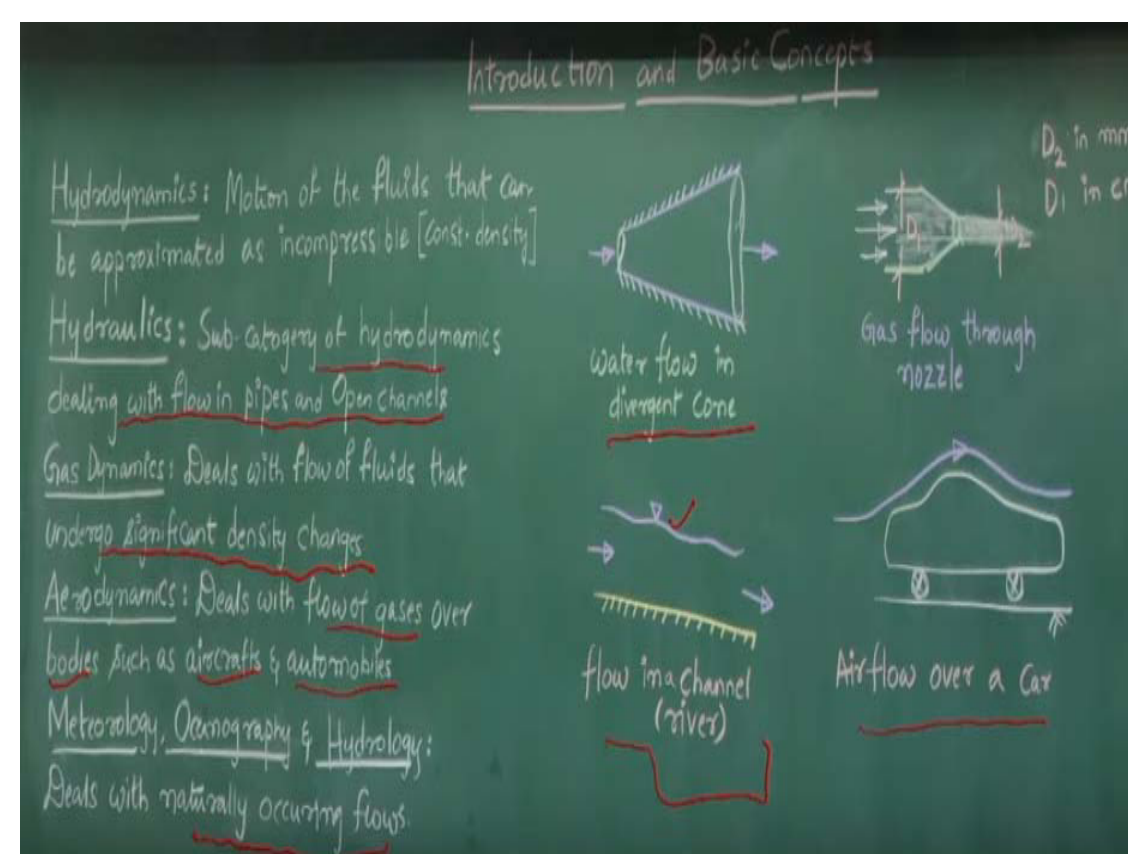 Introduction and Basic Concepts
Hydrodynamics: Motion of the fluids that can
be approximated as incompress ble [Const. density]
Hydraulics: Sub-catogery of hydrodynamics
dealing with flow in pipes and Open channels
Gas Dynamics: Deals with flow of fluids that
undergo significant density changes
Aerodynamics: Deals with flow of gases over
bodies such as aircrafts & automobiles
Meteorology, Oceanography & Hydrology:
Deals with naturally occuring flows.
water flow in
divergent cone
D2 in mm
D1 in cm
D1
Gas flow through
nozzle
flow in a channel
(river)
Airflow over a Car